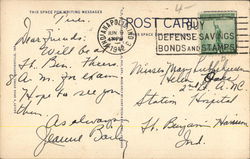 THIS SPACE FOR WRITING MESSAGES
POST CARD
INDIANAPOLIS, IND.
JUN 9
4 PM
1942
BUY
DEFENSE SAVINGS
BONDS AND STAMPS
Tues.
Dear Friends:
Will be at
Ft. Ben. Thurs
A.M. for exam
Hope to see you
then.
As always
Jeanne
Misses Mary
Helen
Station Hospital
Ft. Benjamin Harrison
Ind.